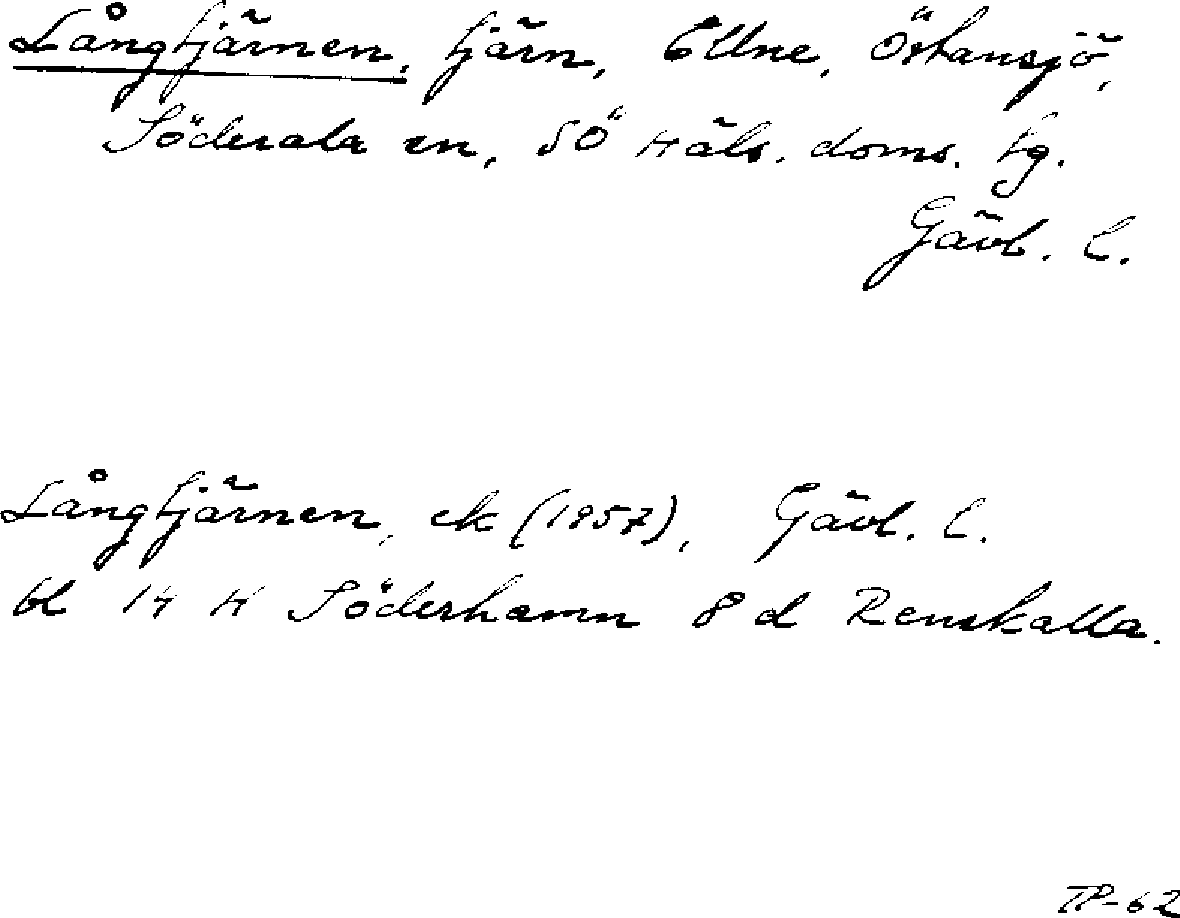 Långtjärnen, tjärn, Ellne, Östansjö,
Söderala sn, SÖ Häls. doms. tg.
Gävl. l.
Långtjärnen, ek (1957), Gävl. l.
bl 14 H Söderhamn 8 d Renskalla.
TP-62